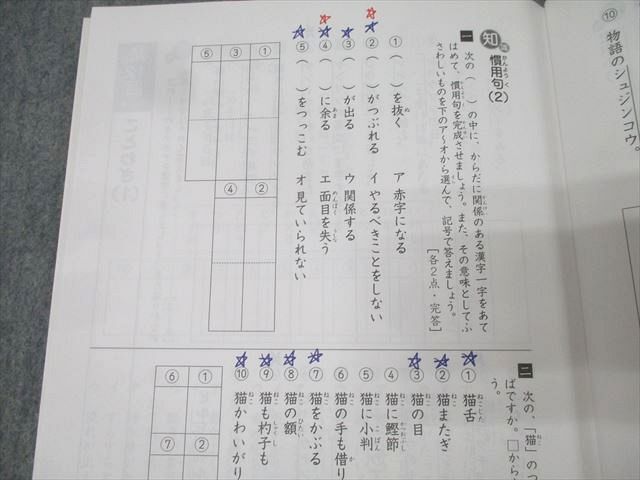 ⑩ 物語のシュジンコウ。
知識 慣用句(2)
一 次の( )の中に、からだに関係のある漢字一字をあて
はめて、慣用句を完成させましょう。また、その意味としてふ
さわしいものを下のア～オから選んで、記号で答えましょう。
[各2点・完答]
①( )を抜く ア 赤字になる
②( )がつぶれる イ やるべきことをしない
③( )が出る ウ 関係する
④( )に余る エ 面目を失う
⑤( )をつっこむ オ 見ていられない
① ③ ⑤
② ④
二 次の、「猫」のつ
ばですか。□から
う。
① 猫舌
② 猫またぎ
③ 猫の目
④ 猫に鰹節
⑤ 猫に小判
⑥ 猫の手も借り
⑦ 猫をかぶる
⑧ 猫の額
⑨ 猫も杓子も
⑩ 猫かわいがり
① ⑥
② ⑦